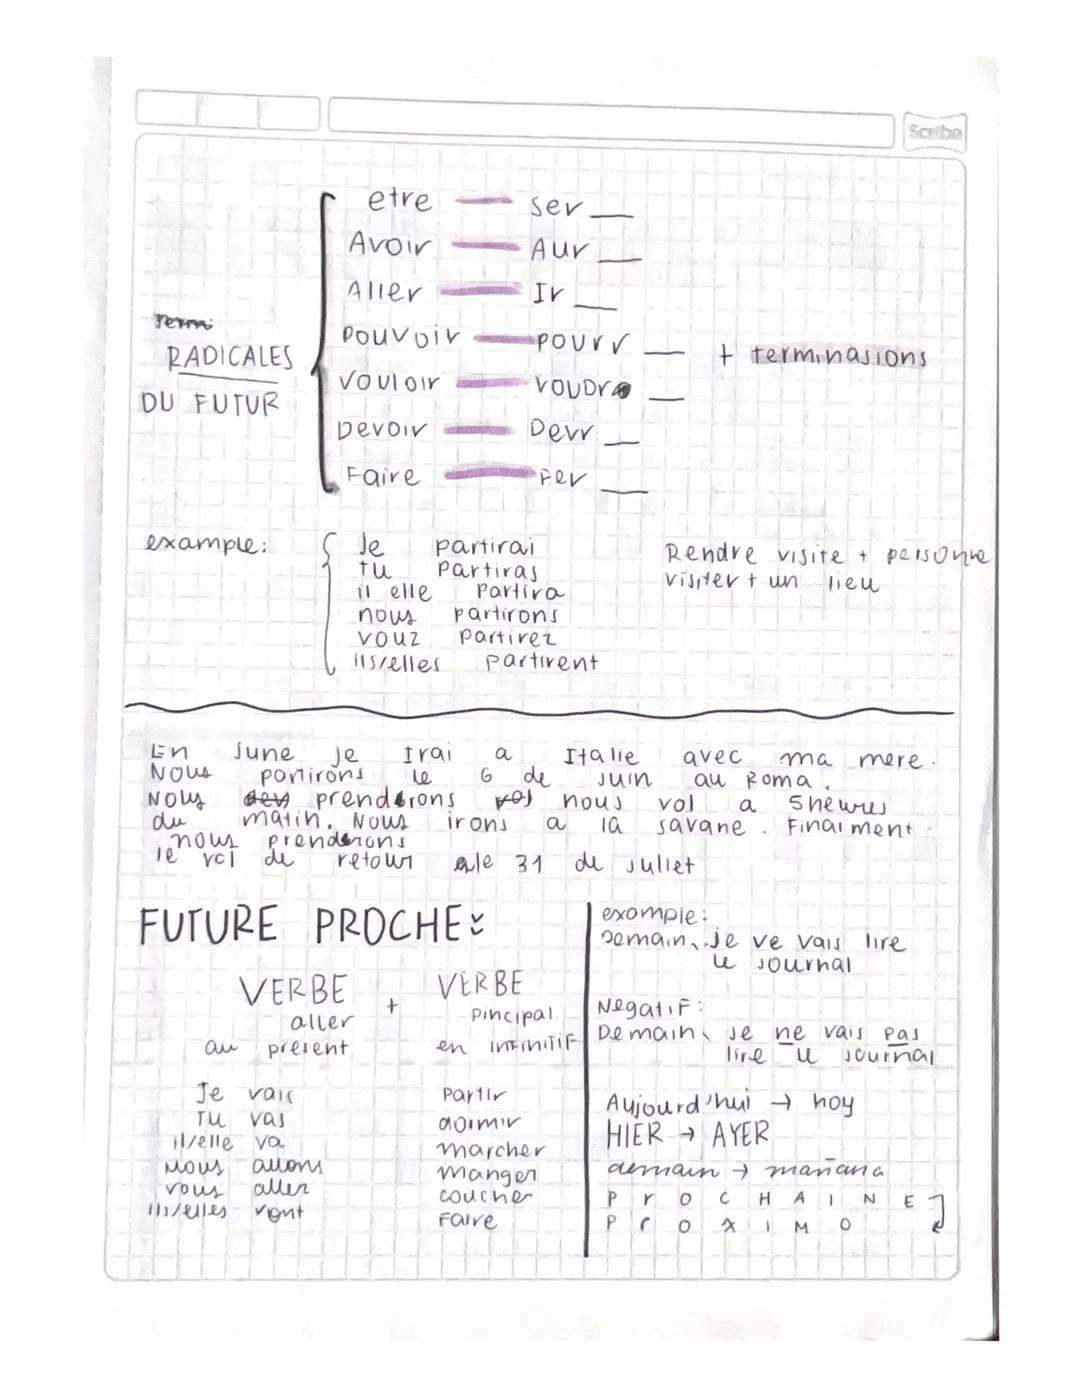 Scribe
etre — ser __
Avoir — Aur __
Aller — Ir __
Pouvoir — pourr __ + terminasions
Vouloir — voudr __
Devoir — Devr __
Faire — Fer __
Term
RADICALES
DU FUTUR
example:
Je partirai
tu partiras
il elle partira
nous partirons
vouz partirez
ils/elles partirent
Rendre visite + personne
visiter + un lieu
En June je Irai a Italie avec ma mere.
Nous partirons le 6 de Juin au Roma.
Nous prenderons nous vol a 5 hewres
du matin. Nous irons a la savane. Finalment
nous prenderons
le vol de retour le 31 de Juliet
FUTURE PROCHE:
VERBE + VERBE
aller pincipal
au present en infinitif
Je vais partir
Tu vas dormir
il/elle va marcher
Nous allons manger
vous aller coucher
ils/elles vont Faire
example:
Demain, Je ve vais lire
le Journal
Negatif:
Demain, Je ne vais pas
lire le Journal
Aujourd'hui → hoy
HIER → AYER
demain → mañana
PrOCHAINE
PrOXIMO